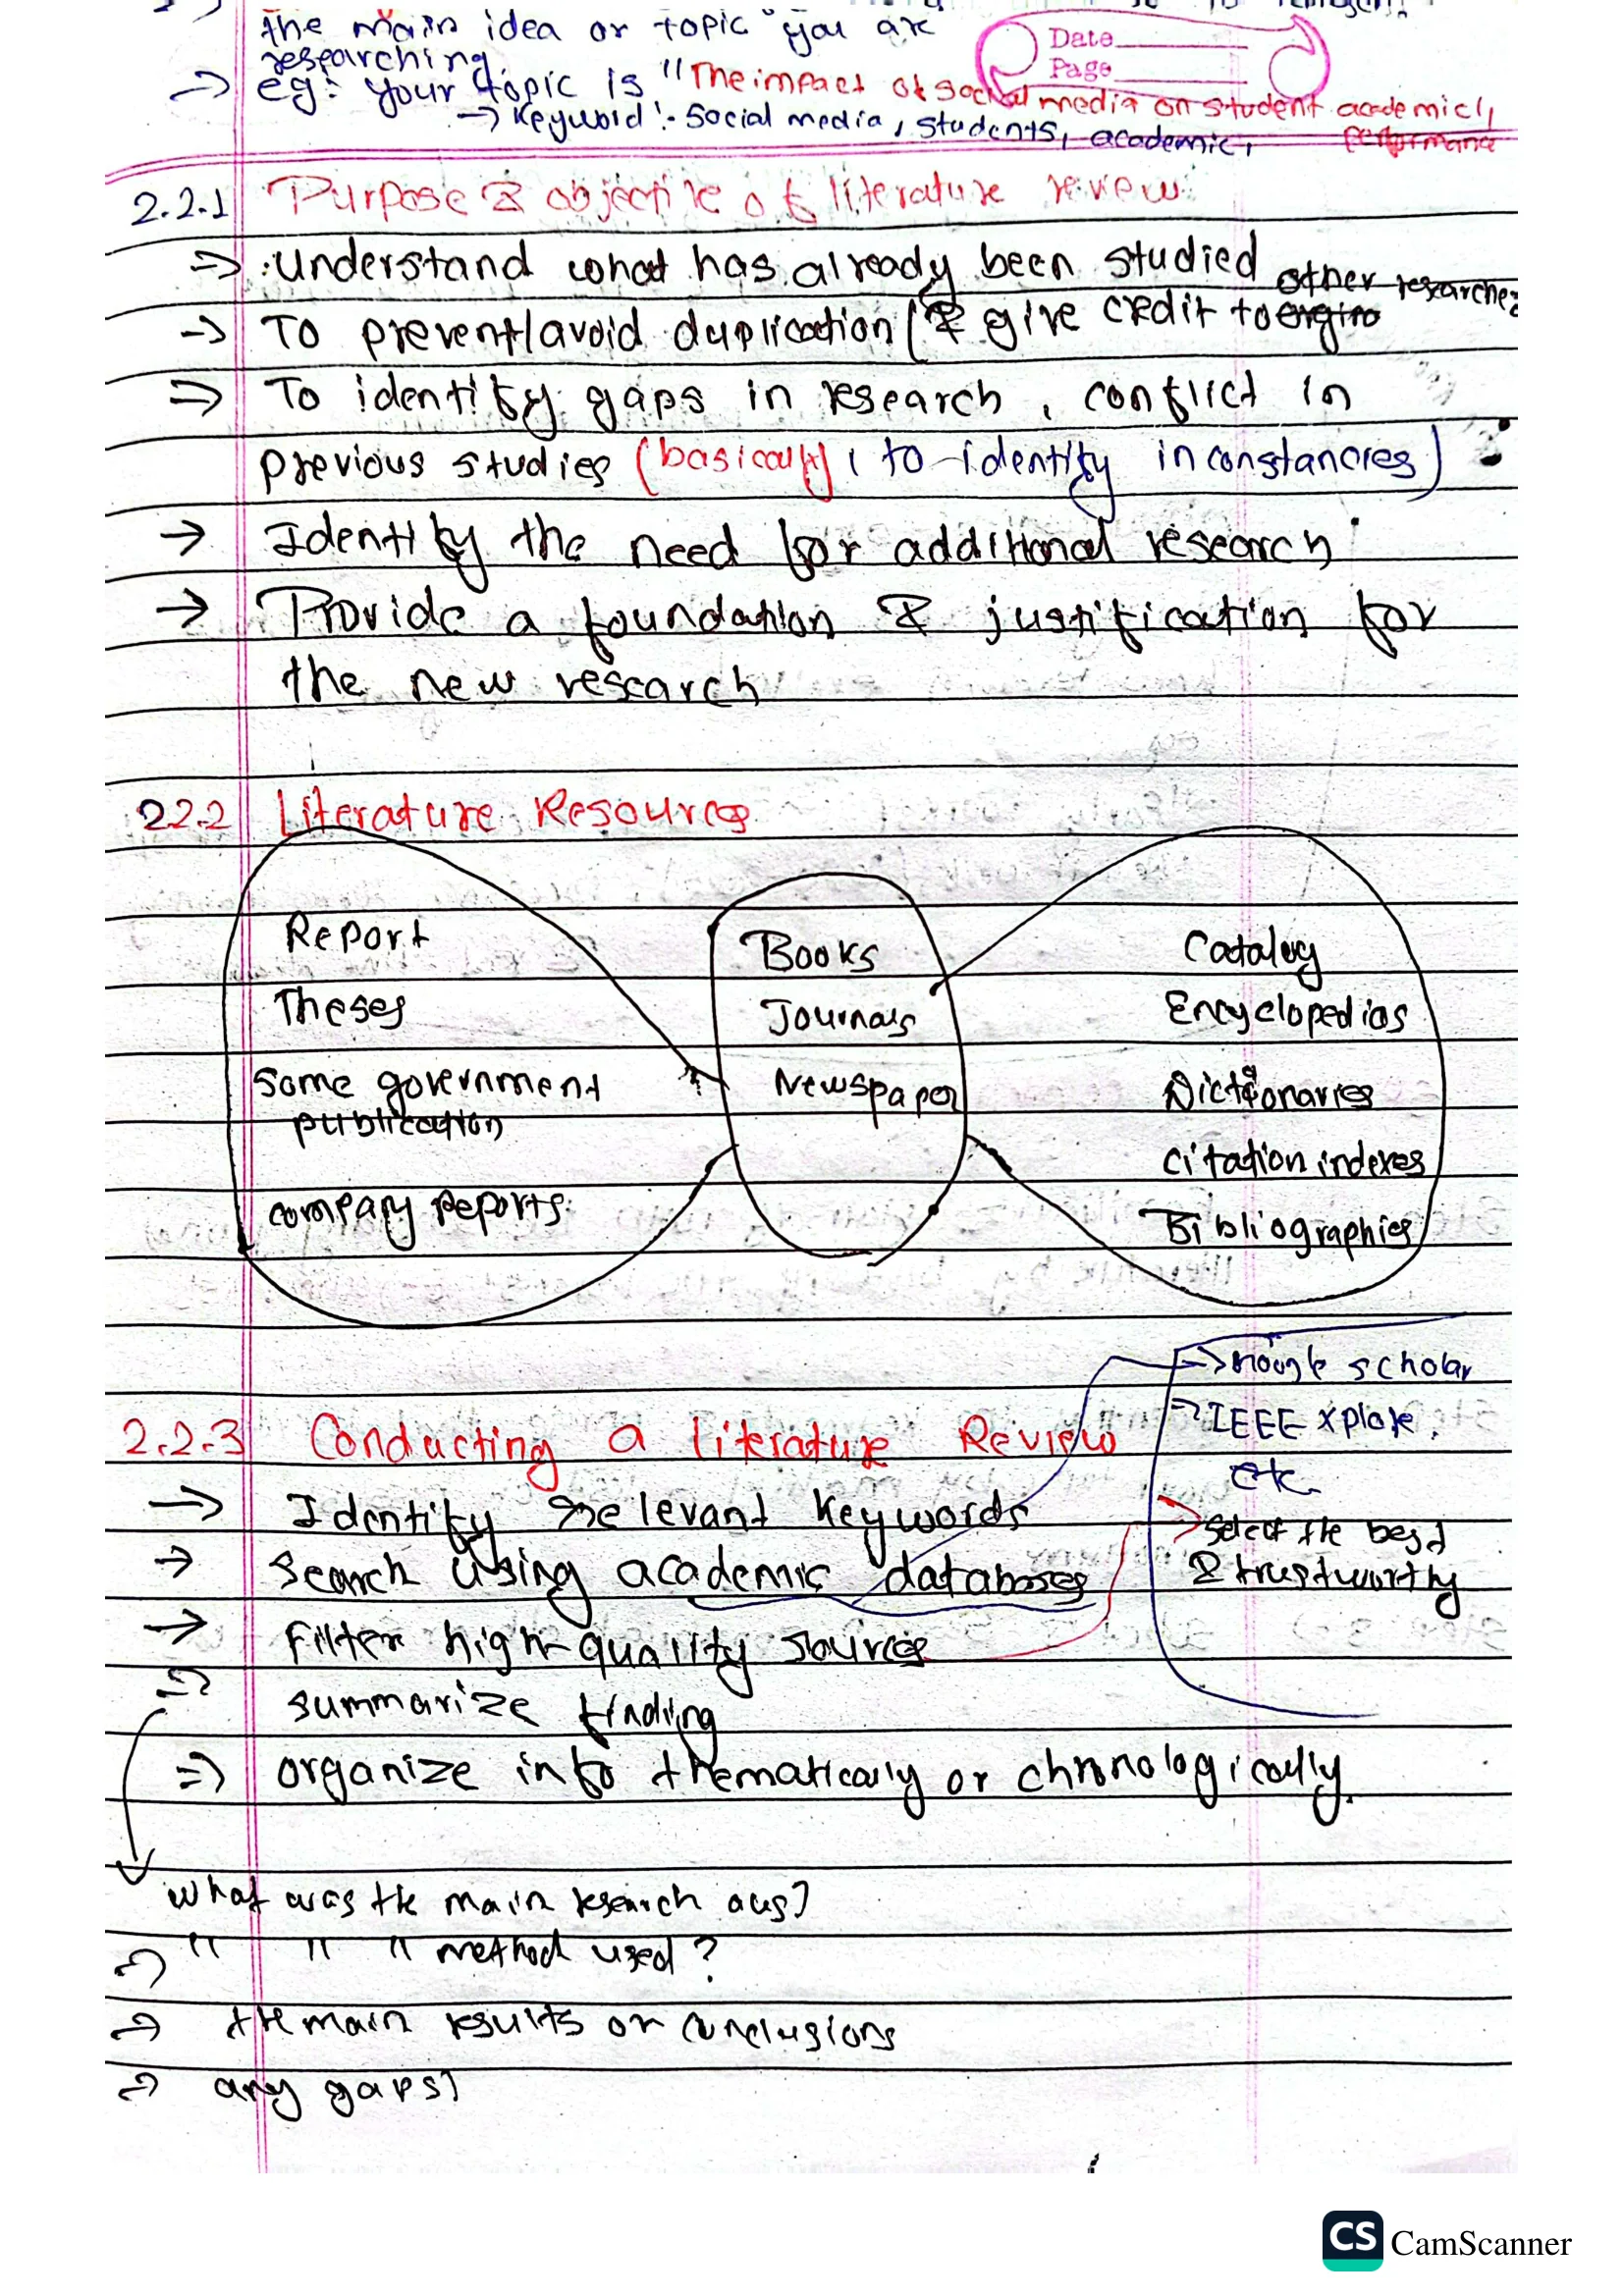 the main idea or topic you are
researching.
Date
Page
=> eg: your topic is "The impact of social media on student academic
performance
-> Keyword :- Social media, students, academic,
2.2.1 Purpose & objective of literature review
=> Understand what has already been studied
-> To prevent/avoid duplication (& give credit to other researcher
=> To identify gaps in research, conflict in
previous studies (basically, to identify inconstancies)
-> Identify the need for additional research
-> Provide a foundation & justification for
the new research
2.2.2 Literature Resources
Report
Theses
Some government
publication
company reports
Books
Journals
Newspaper
Catalog
Encyclopedias
Dictionaries
citation indexes
Bibliographies
2.2.3 Conducting a literature Review
=> Identify relevant keywords
-> search using academic databases
-> Filter high-quality sources
=> summarize finding
=> organize info thematically or chronologically.
-> Google scholar
-> IEEE Xplore,
etc
-> select the best
& trustworthy
what was the main research
=> " " " method used?
=> the main results or conclusions
=> any gaps?
CS CamScanner